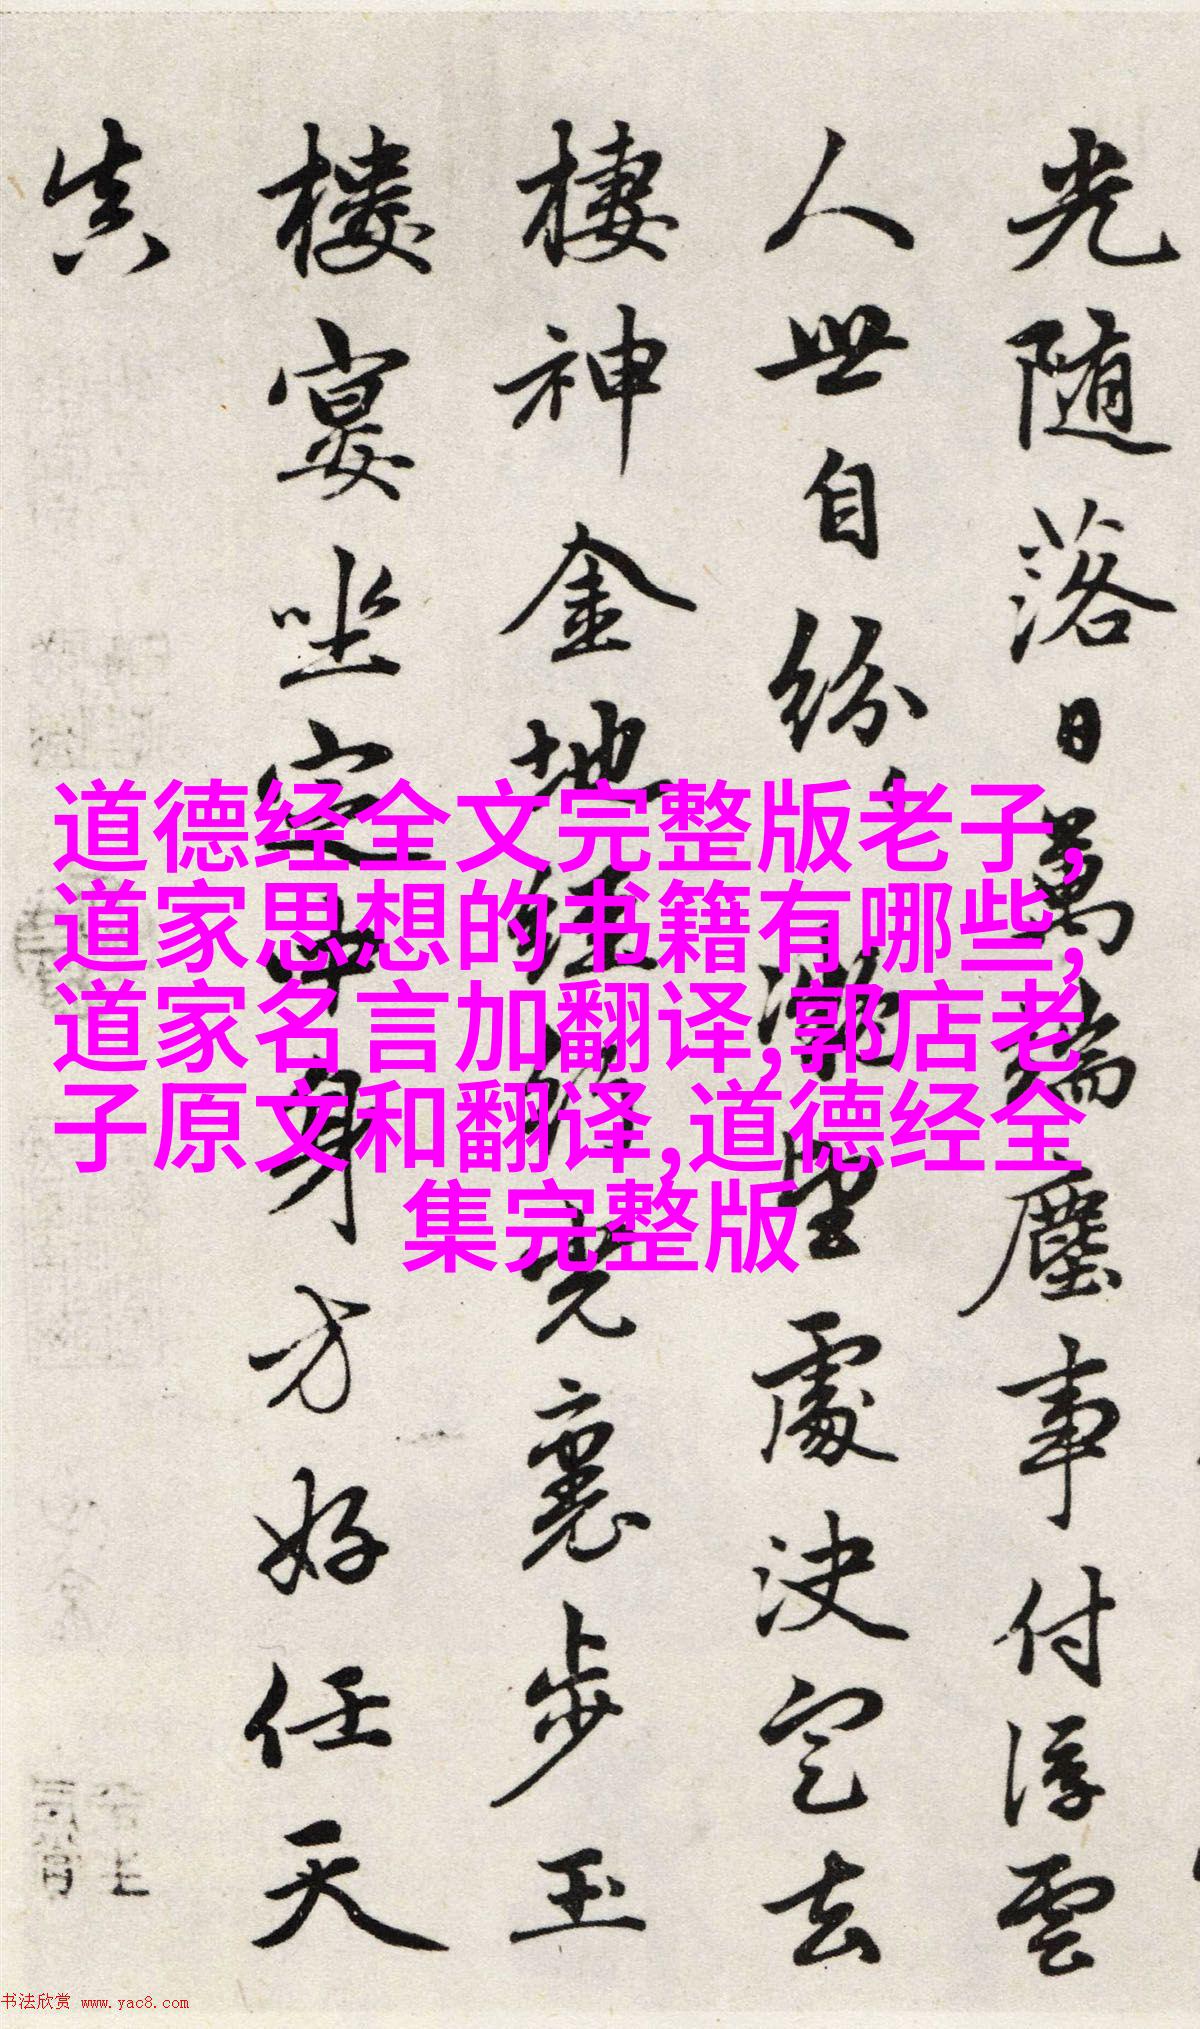 光随落日萬端塵事付浮雲
人世自紛處決定去
棲神金地經光裏步玉
樓宴坐定中身方好任天
真
道德经全文完整版老子,
道家思想的书籍有哪些,
道家名言加翻译,郭店老
子原文和翻译,道德经全
集完整版
书法欣赏 www.yac8.com